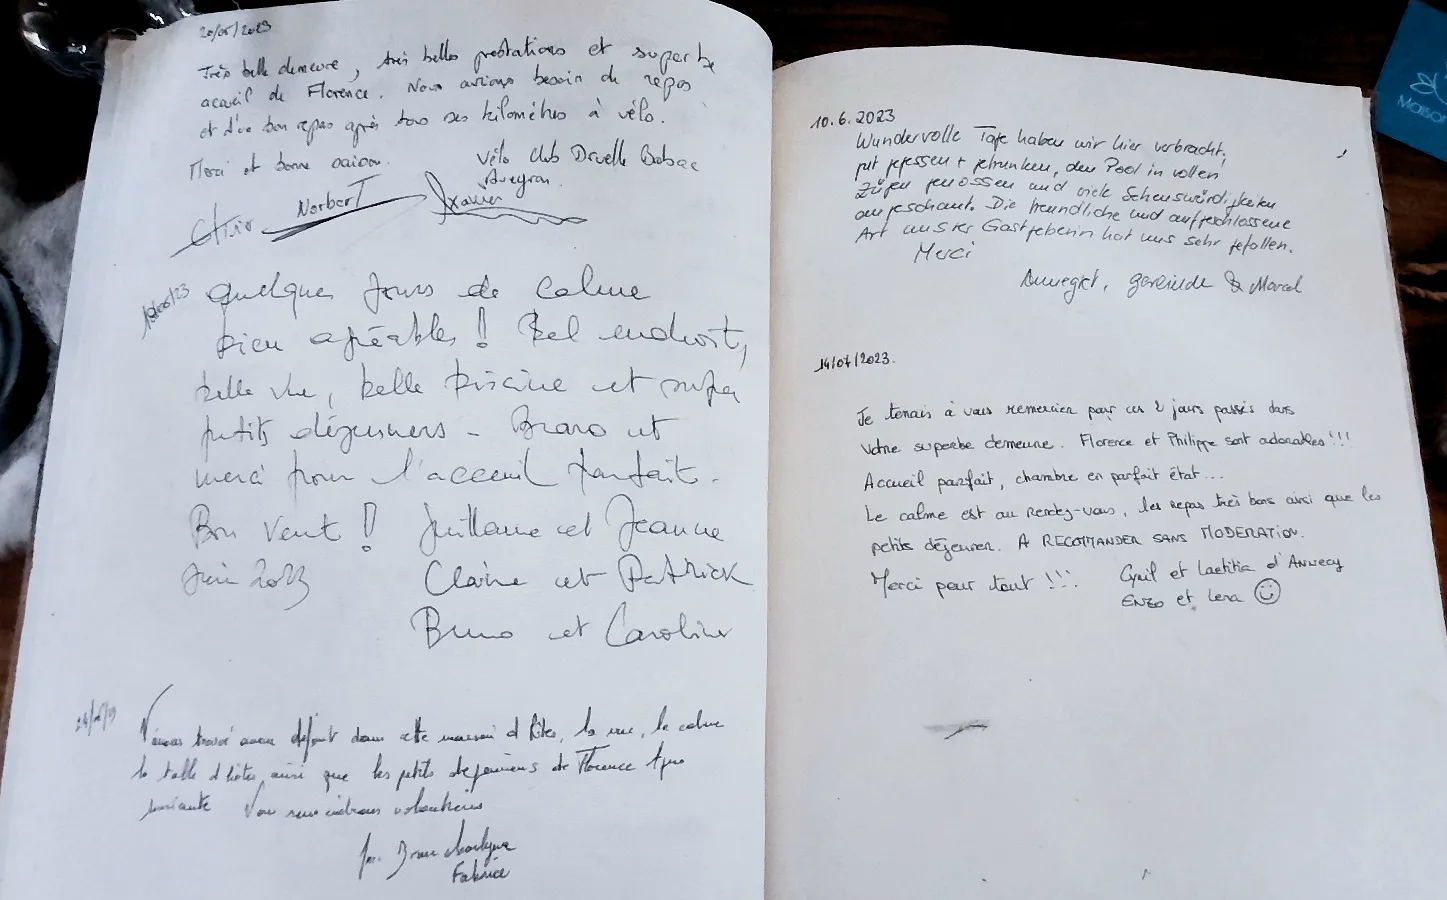 20/05/2023
Très belle demeure, très belles prestations et superbe
acueil de Florence. Nous avions besoin de repos
et d'un bon repas après tous ses kilomètres à vélo.
Merci et bonne saison. Vélo Club Druelle Balsac
Aveyron.
Norbert Xavier
/23 Quelques jours de calme
bien agréables ! Bel endroit,
belle vue, belle piscine et super
petits déjeuners - Bravo et
merci pour l'acceuil parfait.
Bon vent ! Guillaume et Jeanne
Juin 2023 Claire et Patrick
Bruno et Caroline
trouvé aucun défaut dans cette maison d'hôtes, la vue, le calme
la table d'hôtes, ainsi que les petits dejeuners de Florence
Nous reviendrons volontiers
Fabrice
10.6.2023
Wundervolle Tage haben wir hier verbracht,
gut gegessen + getrunken, den Pool in vollen
Zügen genossen und viele Sehenswürdigkeiten
angeschaut. Die freundliche und aufgeschlossene
Art unserer Gastgeberin hat uns sehr gefallen.
Merci
Annegret, Gerlinde & Marcel
14/07/2023.
Je tenais à vous remercier pour ces 2 jours passés dans
votre superbe demeure. Florence et Philippe sont adorables !!!
Accueil parfait, chambre en parfait état...
Le calme est au Rendez-vous, les repas très bons ainsi que les
petits déjeuner. A RECOMMANDER SANS MODERATION.
Merci pour tout !!! Cyril et Laetitia d'Annecy
Enzo et Lena
MAISON